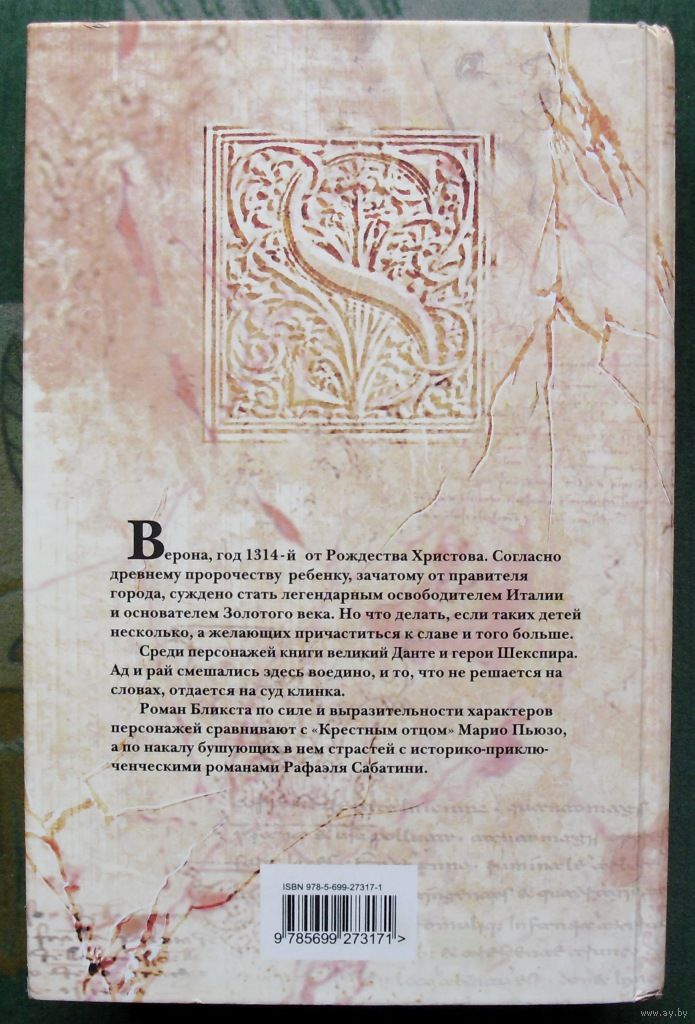 Верона, год 1314-й от Рождества Христова. Согласно
древнему пророчеству ребенку, зачатому от правителя
города, суждено стать легендарным освободителем Италии
и основателем Золотого века. Но что делать, если таких детей
несколько, а желающих причаститься к славе и того больше.
Среди персонажей книги великий Данте и герои Шекспира.
Ад и рай смешались здесь воедино, и то, что не решается на
словах, отдается на суд клинка.
Роман Бликста по силе и выразительности характеров
персонажей сравнивают с «Крестным отцом» Марио Пьюзо,
а по накалу бушующих в нем страстей с историко-приклю-
ченческими романами Рафаэля Сабатини.
ISBN 978-5-699-27317-1
9 785699 273171>
www.ay.by